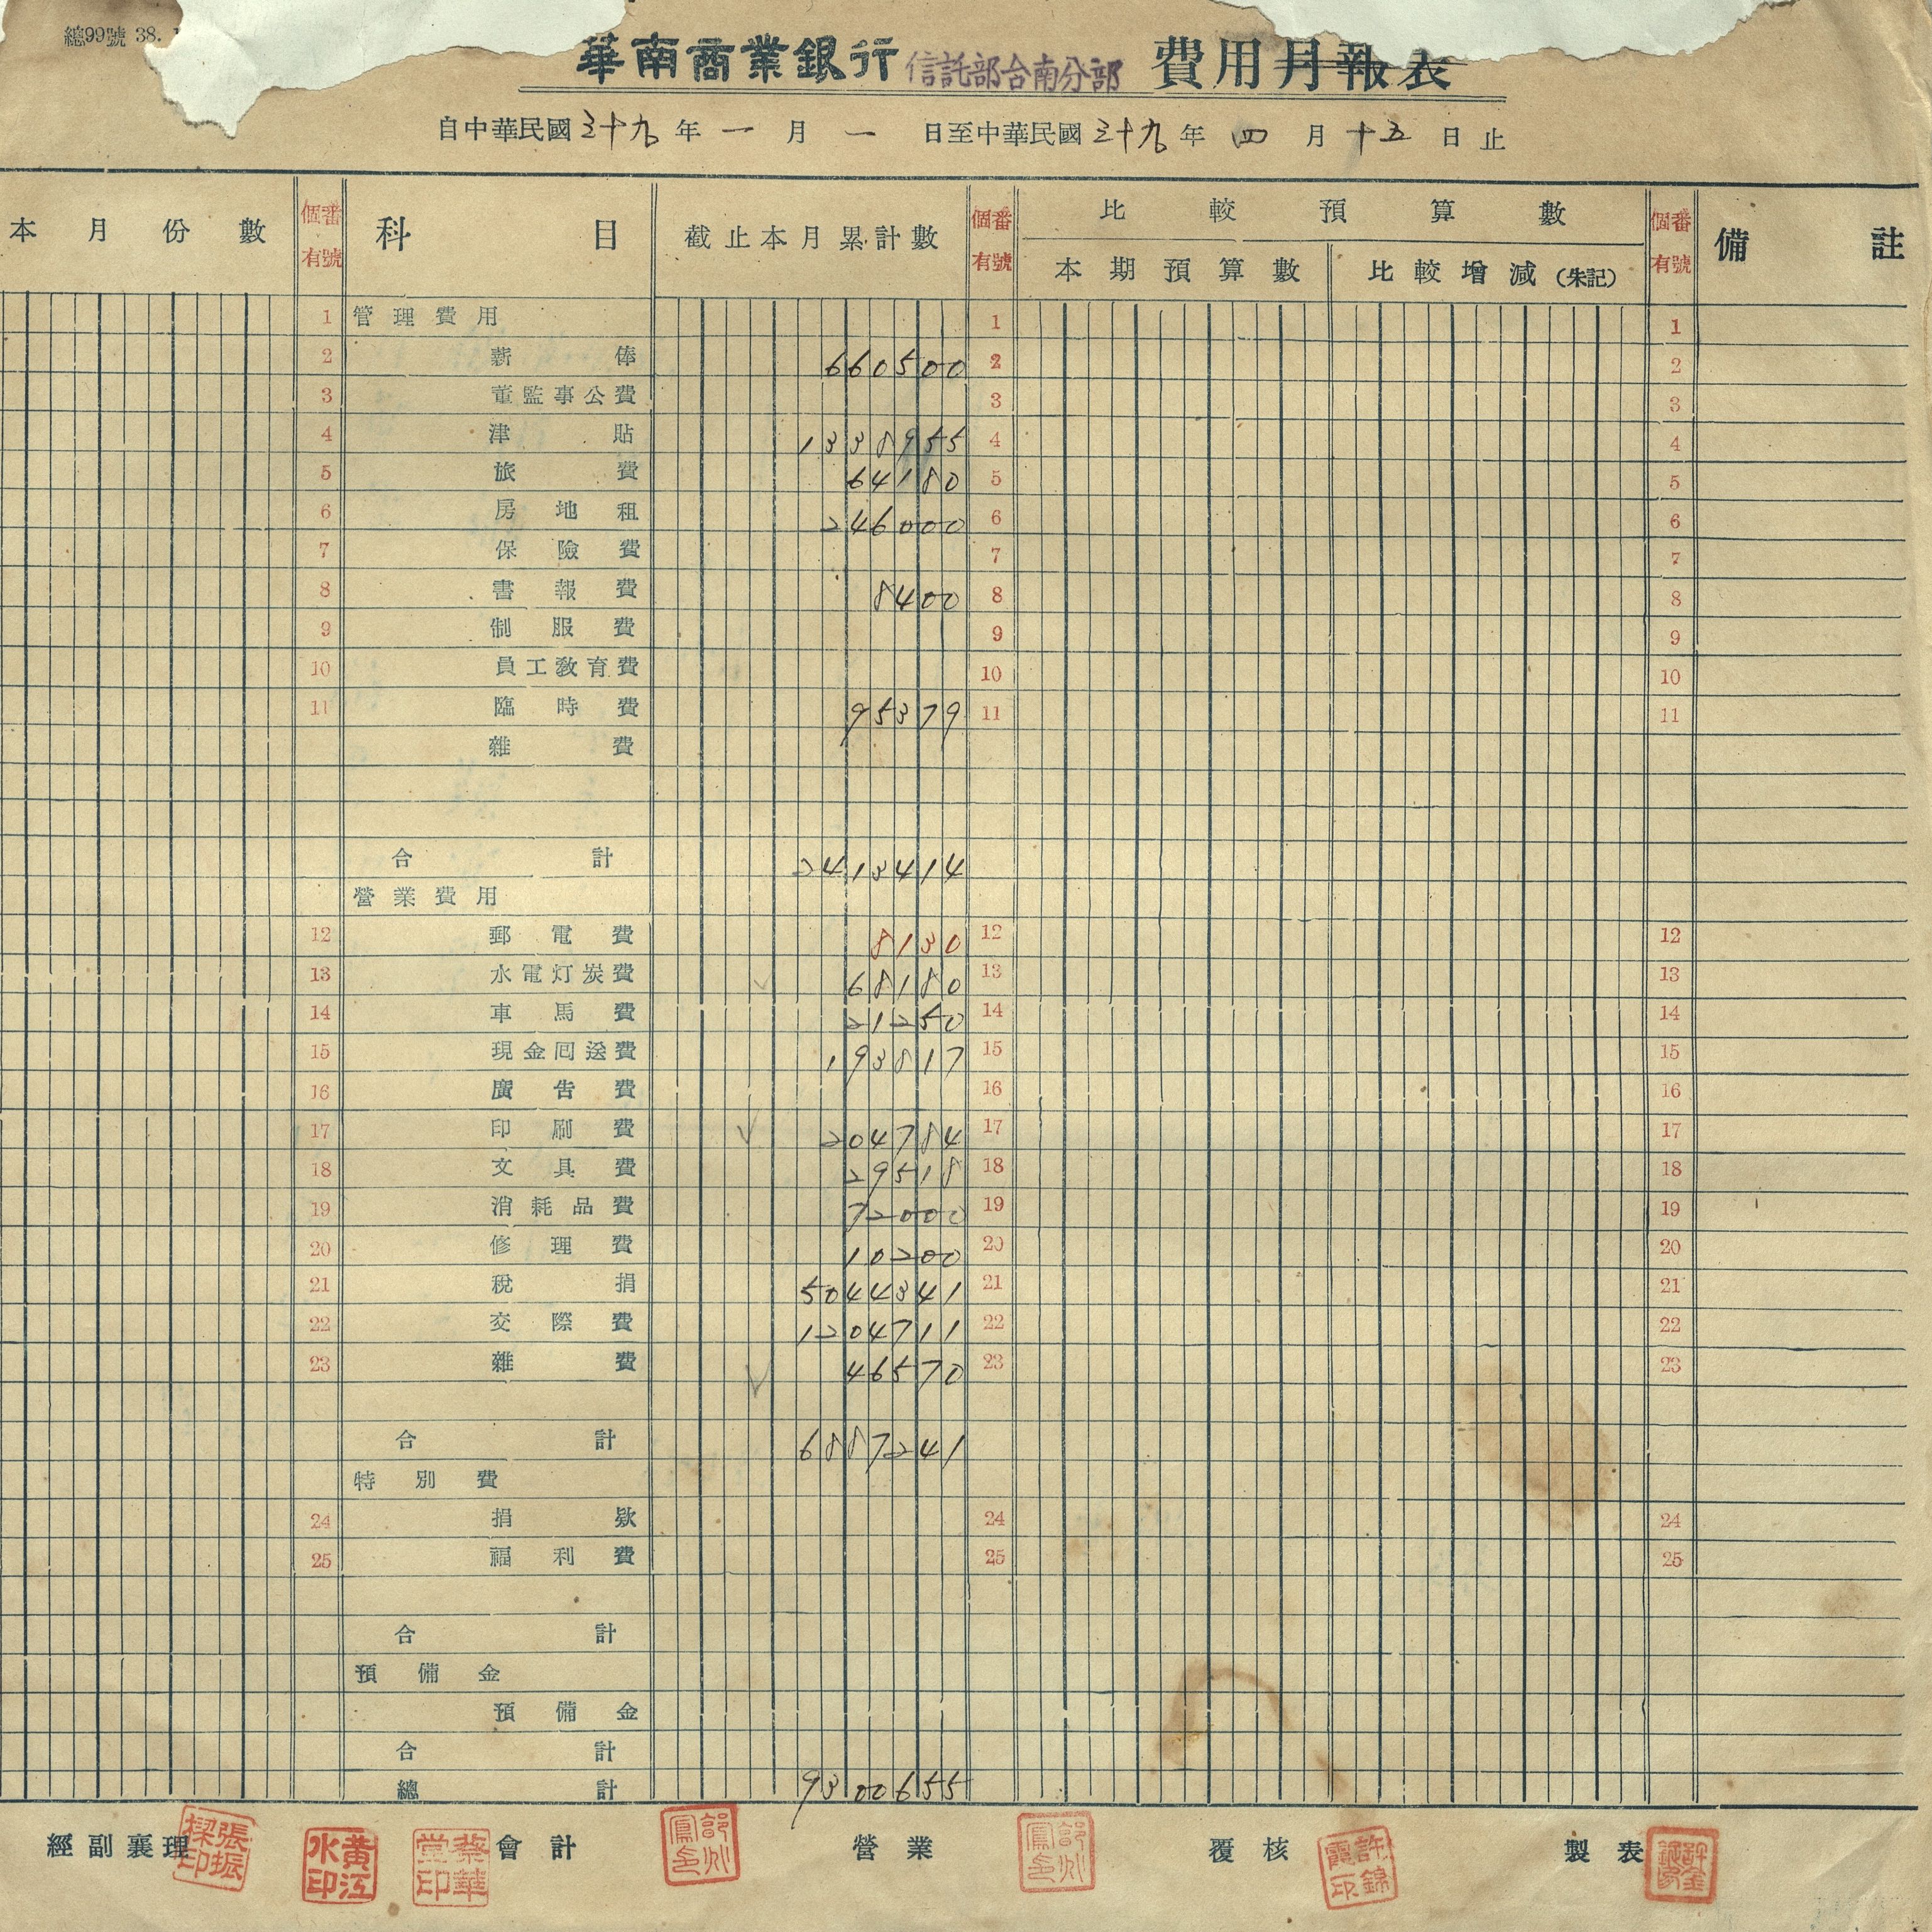 總99號 38.
華南商業銀行 信託部台南分部 費用月報表
自中華民國三十九年一月一日至中華民國三十九年四月十五日止
本月份數 個番有號 科目 截止本月累計數 個番有號 比較預算數 個番有號 備註
本期預算數 比較增減(朱記)
1 管理費用 1 1
2 薪俸 660500 2 2
3 董監事公費 3 3
4 津貼 1338955 4 4
5 旅費 64180 5 5
6 房地租 246000 6 6
7 保險費 7 7
8 書報費 8400 8 8
9 制服費 9 9
10 員工教育費 10 10
11 臨時費 95379 11 11
雜費
合計 2413414
營業費用
12 郵電費 8130 12 12
13 水電灯炭費 68180 13 13
14 車馬費 21250 14 14
15 現金囘送費 193817 15 15
16 廣告費 16 16
17 印刷費 204784 17 17
18 文具費 29518 18 18
19 消耗品費 72000 19 19
20 修理費 10200 20 20
21 稅捐 5044341 21 21
22 交際費 1204711 22 22
23 雜費 46570 23 23
合計 6887241
特別費
24 捐款 24 24
25 福利費 25 25
合計
預備金
預備金
合計
總計 9300655
經副襄理 張振樑印 黃江水印 蔡華堂印 會計 營業 覆核 許錦霞印 製表